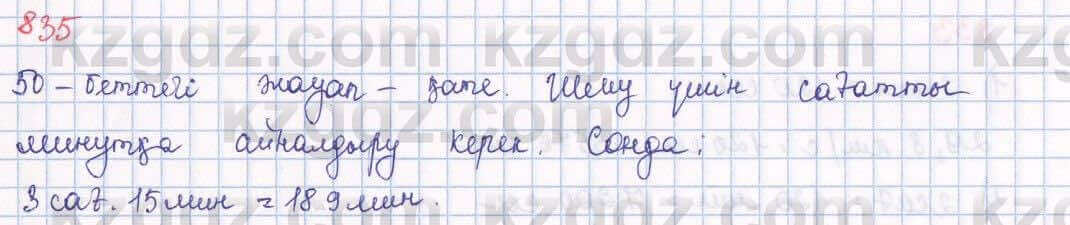 835
50 – беттегі жауап – қате. Шешу үшін сағатты
минутқа айналдыру керек. Сонда:
3 сағ. 15 мин = 189 мин.
kzgdz.com kzgdz.com